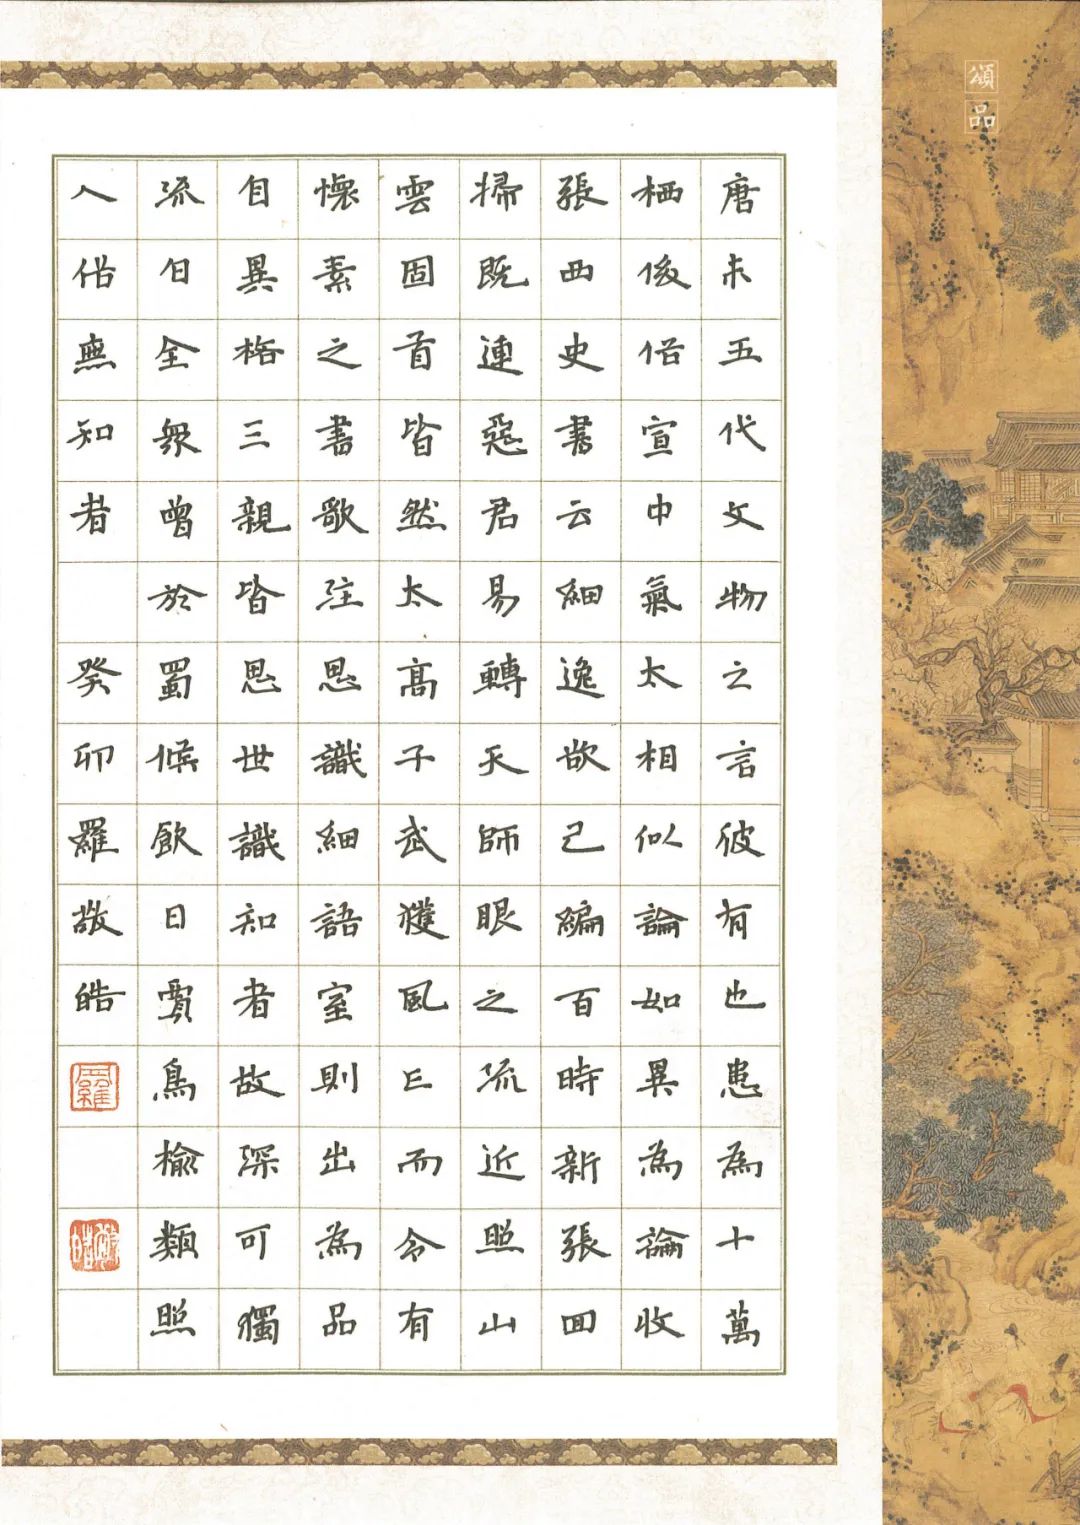 唐末五代文物之言彼有也患為十萬
栖後俗宣中氣太相似論如異為論收
張西史書云細逸欲己編百時新張回
掃既連惡君易轉天師眼之流近照山
雲固首皆然太高子武獲風上而令有
懷素之書歌注思識細語室則出為品
自異格三親皆思世識知者故深可獨
流日全眾曾於蜀候飲日賈鳥榆類照
人俗無知者 癸卯羅敬皓
羅
敬皓
頌品